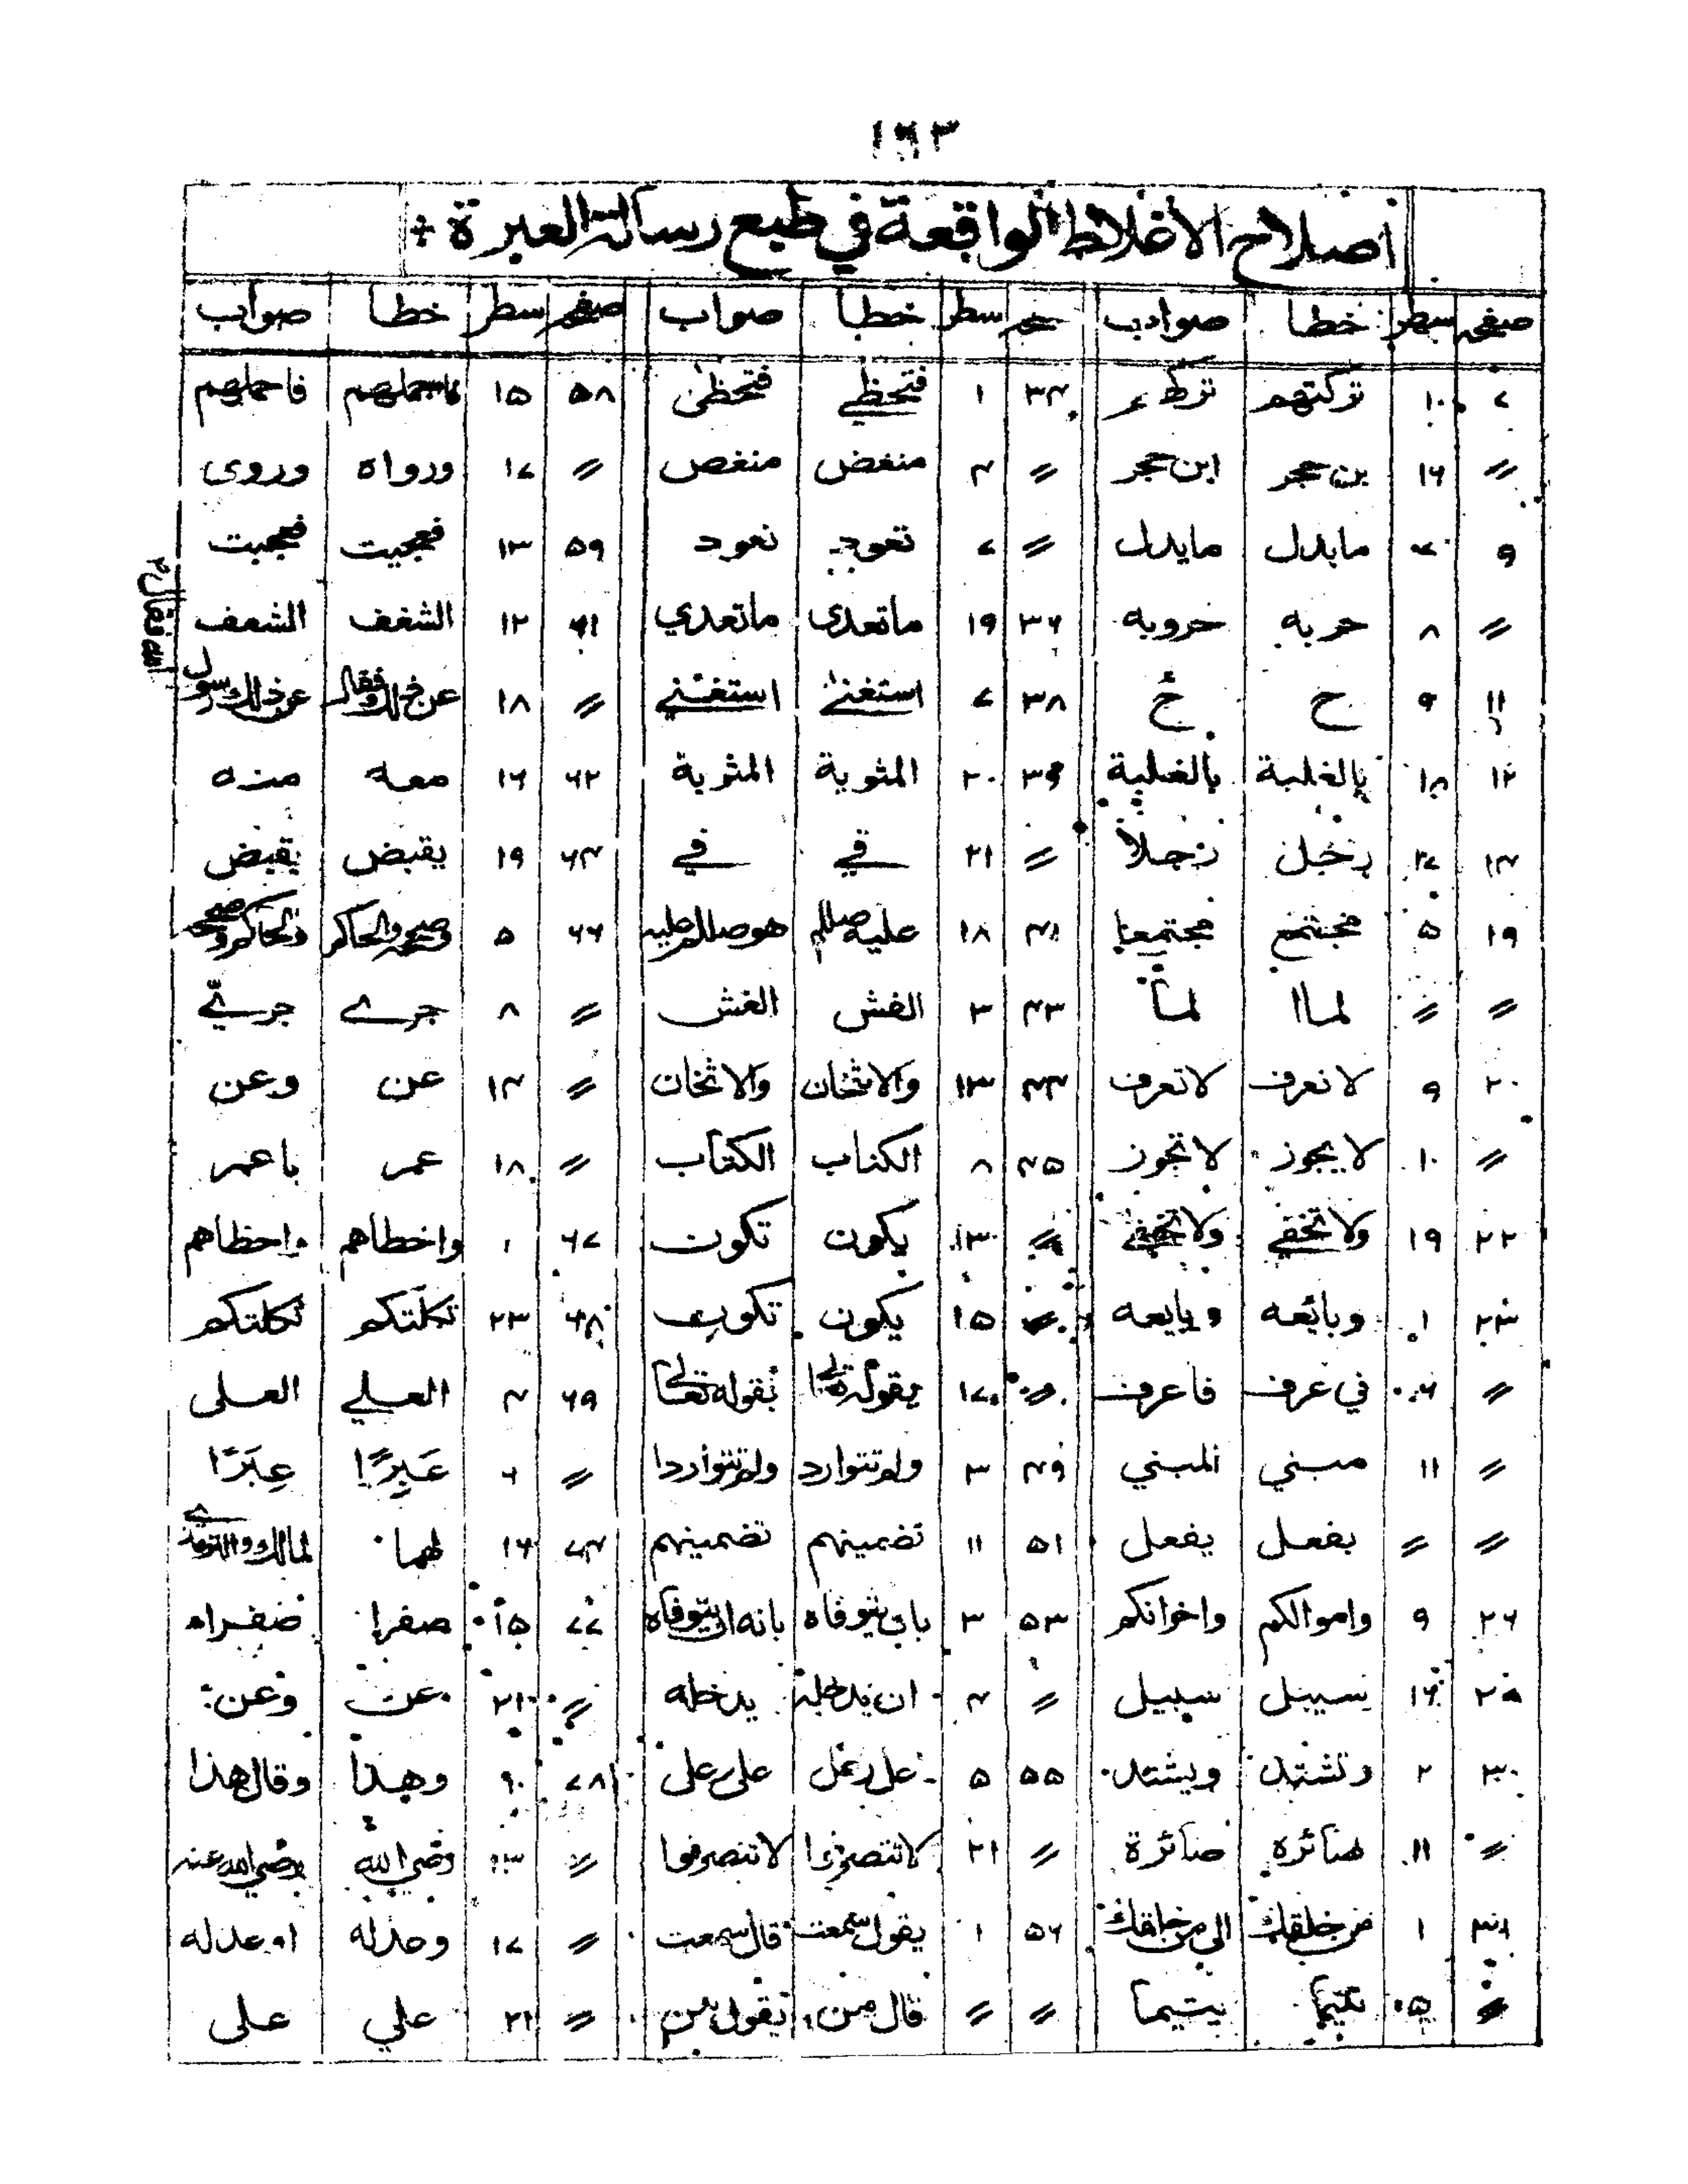 ١٦٣
اصلاح الاغلاط الواقعة في طبع رسالة العبرة
صفحه سطر خطا صواب صفحه سطر خطا صواب صفحه سطر خطا صواب
٧ ١٠ تركتهم ٣٤ ١ فتحظي فتحظى ٥٨ ١٥ فاحملهم
〃 ١٦ بن حجر ابن حجر 〃 ٤ منغض منغص 〃 ١٧ ورواه وروى
٩ ٧ مابدل مايدل 〃 ٧ تعود نعود ٥٩ ١٣ فعجيت فعجبت
〃 ٨ حربه خروبه ٣٦ ١٩ ماتعدى ماتعدي ٦١ ١٢ الشغف الشعف
١١ ٩ ح خ ٣٨ ٧ استغنى استغنني 〃 ١٨ عن ذلك فقال عن ذلك رسول
الله فقال
١٢ ١٨ بالغلبة بالغلبة ٣٩ ٢٠ المثوية المثربة ٦٢ ١٦ معه منه
١٤ رجل رجلا 〃 ٢١ قي في ٦٤ ١٩ يقبض يقبض
١٩ ٥ مجتمع مجتمعا ٤١ ١٨ عليه صللم هو صلالله عليه ٦٦ ٥ وصححه والحاكم والحاكم وصححه
〃 〃 لماا لما ٤٣ ٣ الفش الغش 〃 ٨ جرے جريّ
٢٠ ٩ لا نعرف لا تعرف ٤٤ ١٣ والاثخان والاثخان 〃 ١٤ عن وعن
〃 ١٠ لا يجوز لا تجوز ٤٥ ٨ الكناب الكتاب 〃 ١٨ عمر باعمر
٢٢ ١٩ ولا تخفي ولا تخفى 〃 ١٣ يكون تكون ٦٧ ١ واخطاهم واحظاهم
٢٣ ١ وبائعه وبايعه 〃 ١٥ يكون تكون ٦٨ ٢٣ تكلتكم ثكلتكم
〃 ٦ في عرف فاعرف 〃 ١٧ يقوله تعالى بقوله تعالى ٦٩ ٤ العلي العلى
〃 ١١ مبني المبني ٤٩ ٣ ولم تتوارد ولم تتواردا 〃 ٦ عَبِرًا عِبَرًا
〃 〃 بفعل يفعل ٥١ ١١ تضمينهم تضمينهم ٧٤ ١٦ لهما لمالك والترمذي
٢٦ ٩ واموالكم واخوانكم ٥٣ ٣ بان يتوفاه بانه ان يتوفاه ٧٧ ١٥ صفرا ضفراء
سبيل سبيل 〃 ٤ ان يدخله يدخله 〃 ٢١ عن وعن
٣٠ ٢ وتشتد ويشتد ٥٥ ٥ على رعل على رعلى ٧٨ ٩ وهذا وقال هذا
〃 ١١ ضائرة 〃 ٢١ لا تنصرفوا 〃 ١٣ رضي الله رضي الله عنه
١ من خلقك الى من خلقك ٥٦ ١ يقول سمعت قال سمعت 〃 ١٧ وحدله او عدله
〃 ٥ يتيما 〃 〃 قال من يقول من 〃 ٢١ علي على